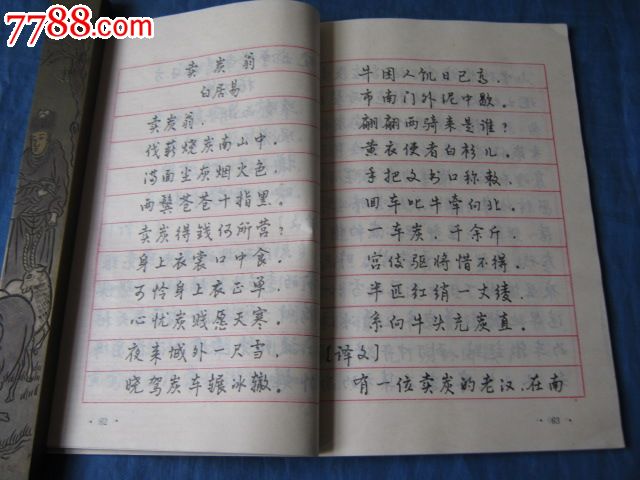 7788.com
卖炭翁
白居易
卖炭翁,
伐薪烧炭南山中.
满面尘灰烟火色.
两鬓苍苍十指黑.
卖炭得钱何所营?
身上衣裳口中食
可怜身上衣正单.
心忧炭贱愿天寒.
夜来城外一尺雪.
晓驾炭车辗冰辙.
·62·
牛困人饥日已高.
市南门外泥中歇.
翩翩两骑来是谁?
黄衣使者白衫儿.
手把文书口称敕.
回车叱牛牵向北.
一车炭.千余斤.
宫使驱将惜不得.
半匹红绡一丈绫.
系向牛头充炭直.
[译文]
有一位卖炭的老汉.在南
·63·